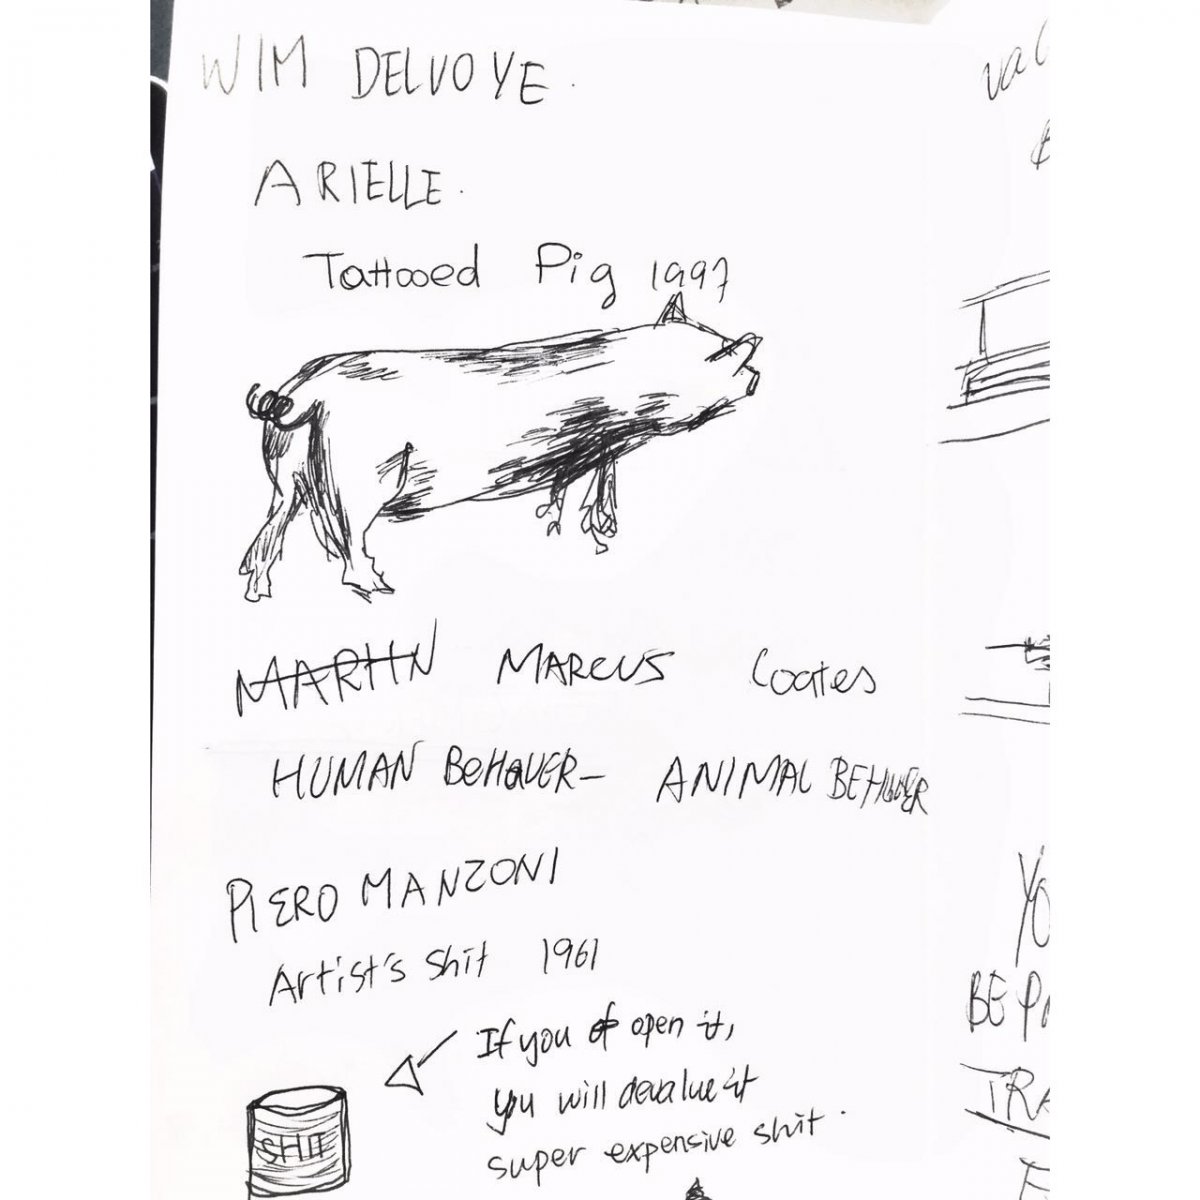 WIM DELVOYE.
ARIELLE.
Tattooed Pig 1997
MARTIN MARCUS Coates
HUMAN BEHAVER- ANIMAL BEHAVER
PIERO MANZONI
Artist's shit 1961
If you of open it,
you will devalue it
super expensive shit.
SHIT
val
YO
BE PA
TRA
F